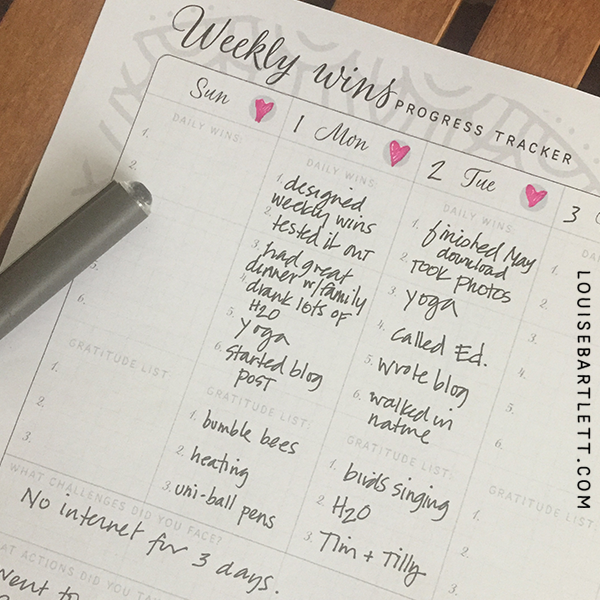 Weekly wins
PROGRESS TRACKER
Sun
DAILY WINS:
1.
2.
5.
6.
GRATITUDE LIST:
1.
2.
3.
1 Mon
DAILY WINS:
1. designed
weekly wins
2. tested it out
3. had great
dinner w/family
drank lots of
H2O
5. yoga
6. started blog
post
GRATITUDE LIST:
1. bumble bees
2. heating
3. uni-ball pens
2 Tue
DAILY WINS:
1. finished May
download
2. TOOK PHOTOS
3. yoga
4. called Ed.
5. wrote blog
6. walked in
nature
GRATITUDE LIST:
1. birds singing
2. H2O
3. Tim + Tilly
3
1.
2.
3.
4.
5.
6.
GRATITUDE LIST
1.
2.
3.
WHAT CHALLENGES DID YOU FACE?
No internet for 3 days.
WHAT ACTIONS DID YOU
went to
LOUISEBARTLETT.COM